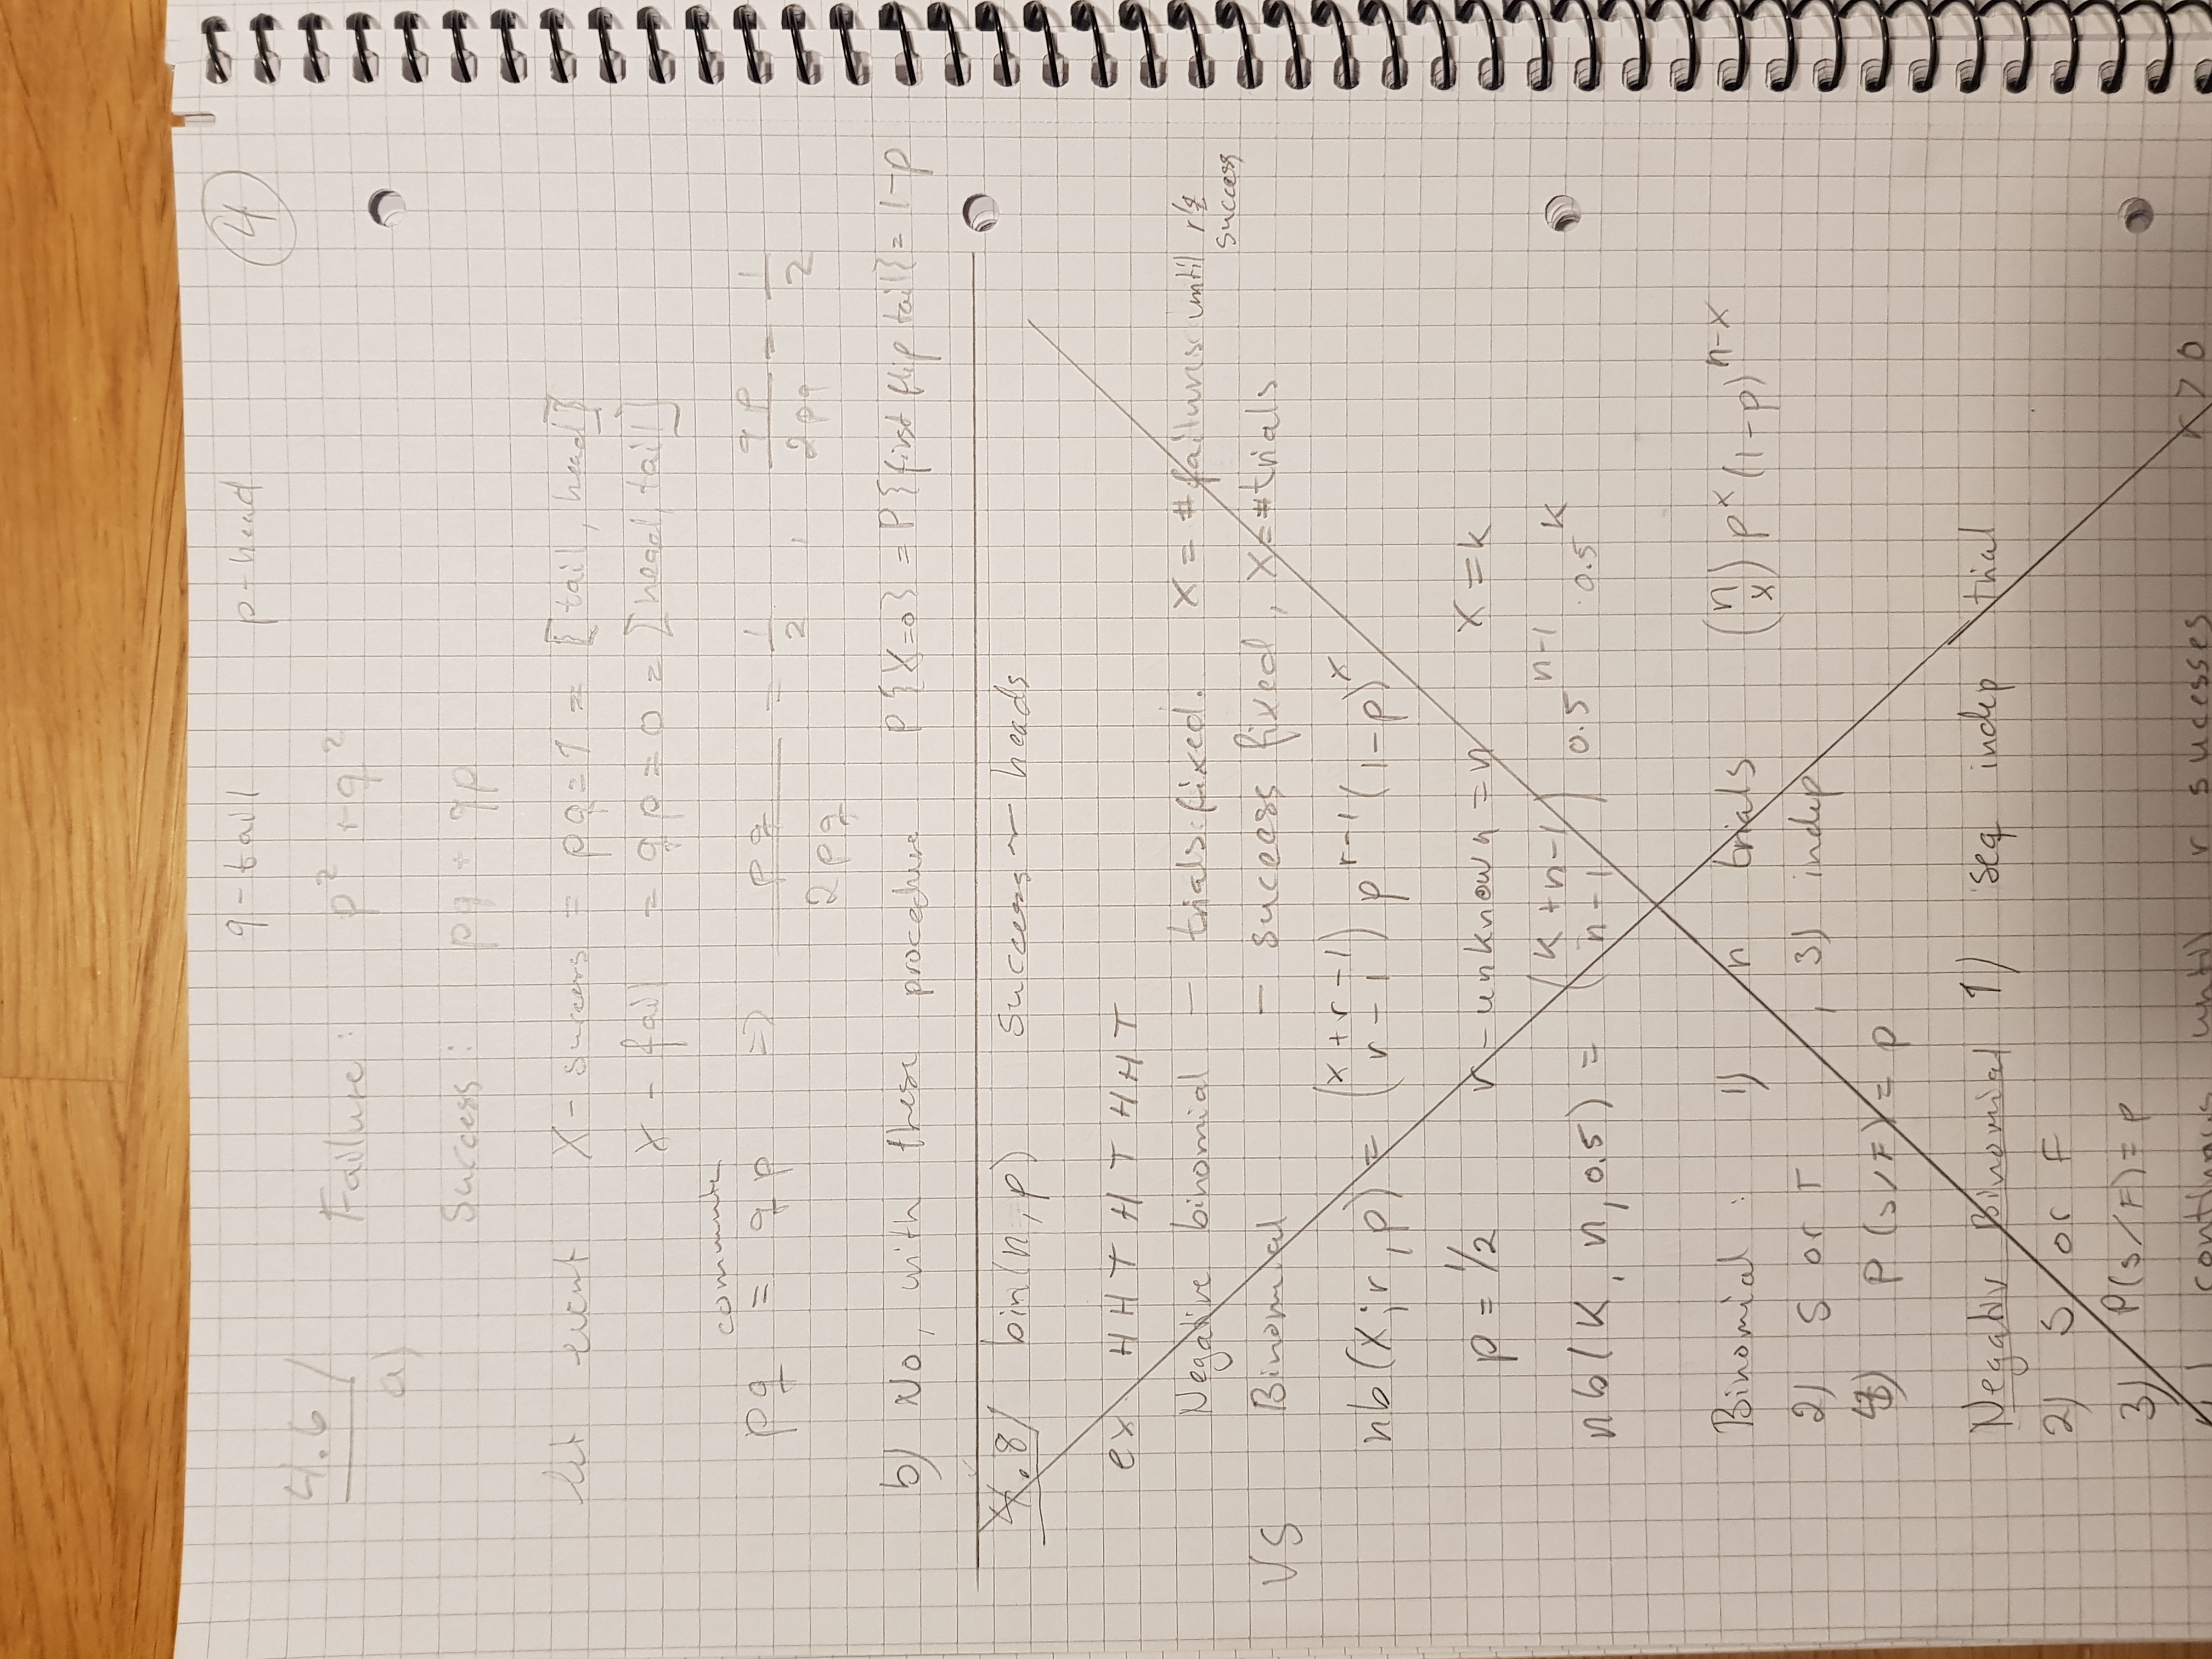 q - tail p - head 4
4.6/
Failure: p² + q²
a)
Success: pq + qp
let event X - success = pq = 1 = [tail, head]
X - fail = qp = 0 = [head, tail]
commute
pq = qp => pq/2pq = 1/2 , qp/2pq = 1/2
b) No, with these procedure P{X=0} = P{first flip tail} = 1-p
4.8/ bin(n, p) Success ~ heads
ex H H T H T H H T
Negative binomial - trials fixed. X = # failures until
success
VS Binomial - success fixed, X = # trials
nb(x; r, p) = (x + r - 1 / r - 1) p^(r-1) (1-p)^x
p = 1/2 r - unknown = n X = k
nb(k, n, 0.5) = (k + n - 1 / n - 1) 0.5^(n-1) · 0.5^k
Binomial : 1) n trials (n / x) p^x (1-p)^(n-x)
2) S or T , 3) indep
4) P(S/F) = p
Negativ Binomial 1) seq indep trial
2) S or F
3) P(S/F) = p
continous until r sucesses r > 0